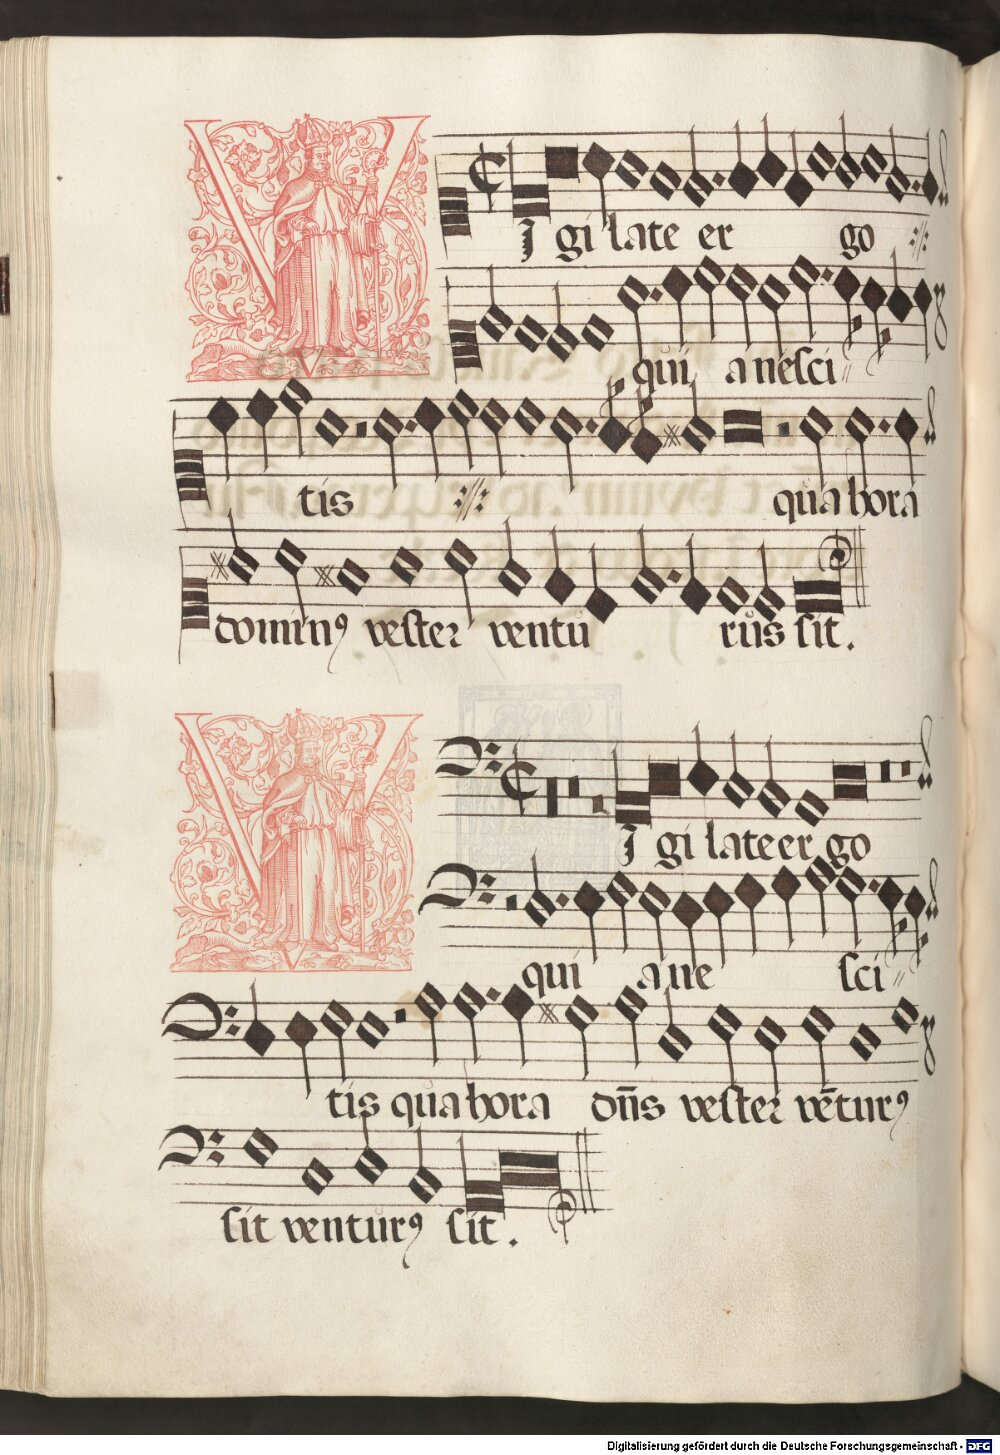 Vigilate ergo
quia nesci
tis qua hora
dominꝰ vester ventu rus sit.
Vigilate ergo
quia ne sci
tis qua hora dn̄s vester vēturꝰ
sit venturꝰ sit.
Digitalisierung gefördert durch die Deutsche Forschungsgemeinschaft - DFG